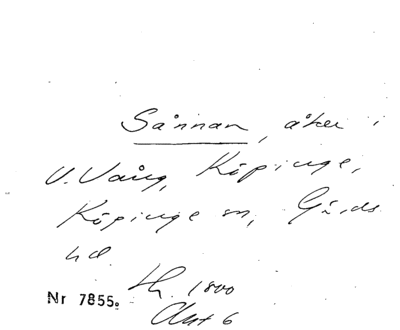 Sånnan, åker i
V. Vång, Köpinge,
Köpinge sn, Gärds
hd
Lh. 1800
Akt 6
Nr 7855.